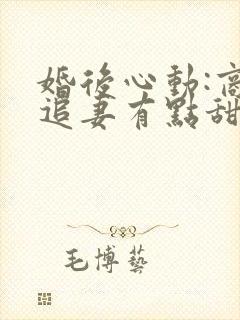 婚後心動:
追妻有點甜
毛博藝